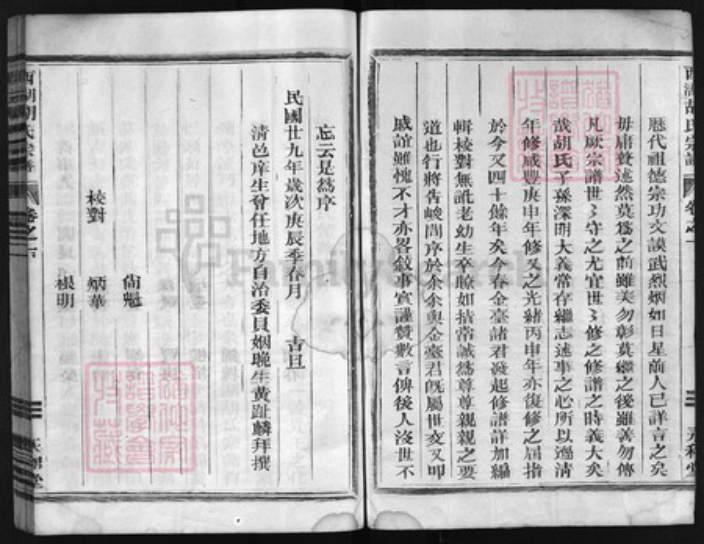 西湖胡氏宗譜
卷之一
歷代祖德宗功文謨武烈炳如日星前人已詳言之矣
毋庸贅述然莫為之前雖美勿彰莫繼之後雖善勿傳
凡厥宗譜世〻守之尤宜世〻修之修譜之時義大矣
哉胡氏子孫深明大義常存繼志述事之心所以遜清
年修咸豐庚申年修又之光緒丙申年亦復修之屆指
於今又四十餘年矣今春金臺諸君發起修譜詳加編
輯校對無訛老幼生卒瞭如指掌誠為尊尊親親之要
道也行將告峻問序於余余與金臺君既屬世交又叩
戚誼雖愧不才亦畧敘事宜謹贊數言俾後人沒世不
忘云是為序
民國廿九年歲次庚辰季春月 吉旦
清邑庠生曾任地方自治委員姻晚生黃趾麟拜撰
尚魁
校對 炳華
根明
西湖胡氏宗譜
卷之
FamilySearch